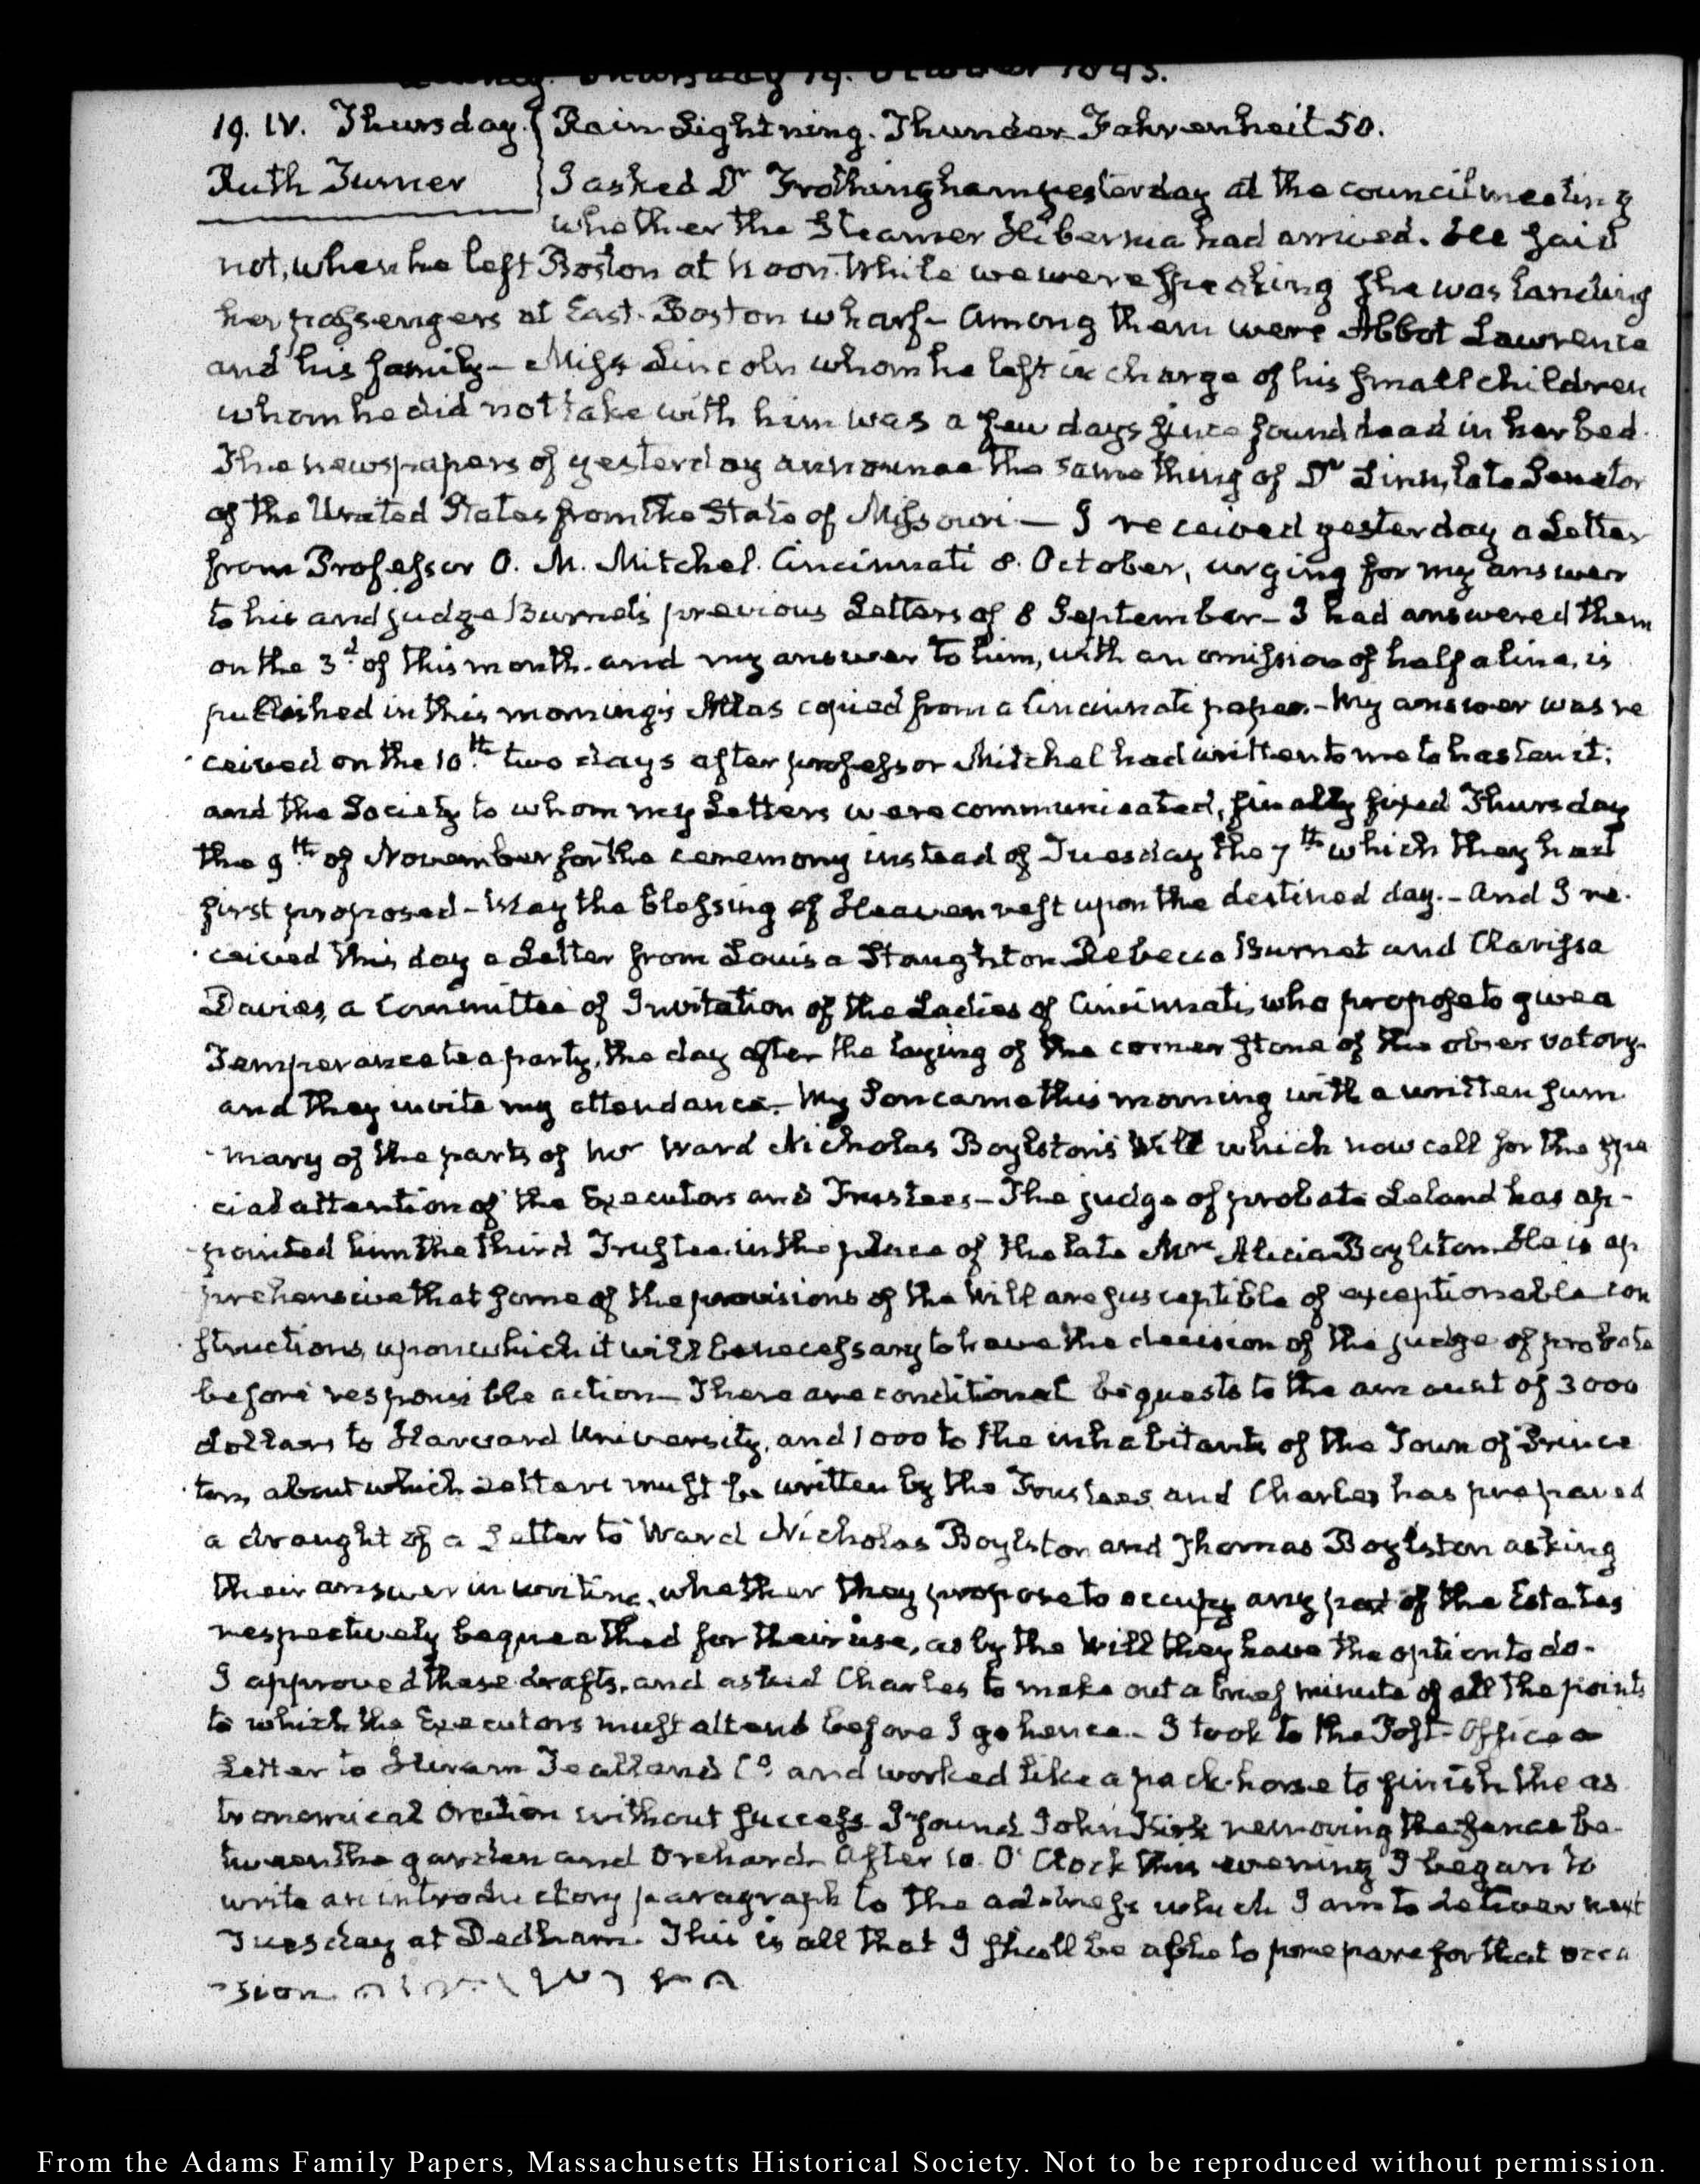 Quincy. Thursday 19. October 1843.
19. IV. Thursday. Rain Lightning. Thunder Fahrenheit 50.
Ruth Turner I asked Dr Frothingham yesterday at the council meeting
whether the Steamer Hibernia had arrived. He said
not, when he left Boston at Noon. While we were speaking she was landing
her passengers at East-Boston wharf— Among them were Abbot Lawrence
and his family— Miss Lincoln whom he left in charge of his small children
whom he did not take with him was a few days since found dead in her bed.
The newspapers of yesterday announce the same thing of Dr Linn, late Senator
of the United States from the State of Missouri— I received yesterday a Letter
from Professor O. M. Mitchel. Cincinnati 8. October, urging for my answer
to his and judge Burnet's previous Letters of 8 September— I had answered them
on the 3d of this month. and my answer to him, with an omission of half a line, is
published in this morning's Atlas copied from a Cincinnati paper.— My answer was re
ceived on the 10.th two days after professor Mitchel had written to me to hasten it:
and the Society to whom my Letters were communicated, finally fixed Thursday
the 9th of November for the ceremony instead of Tuesday the 7th which they had
first proposed— May the blessing of Heaven rest upon the destined day.— And I re-
ceived this day a Letter from Louisa Staughton Rebecca Burnet and Clarissa
Davies, a Committee of Invitation of the Ladies of Cincinnati, who propose to give a
Temperance tea party, the day after the laying of the corner stone of the observatory.
and they invite my attendance.— My Son came this morning with a written sum
mary of the parts of Mr Ward Nicholas Boylston's Will which now call for the spe
cial attention of the Executors and Trustees— The judge of probate Leland has ap-
pointed him the third Trustee in the place of the late Mrs Alicia Boylston. He is ap
prehensive that some of the provisions of the Will are susceptible of exceptionable con
structions, upon which it will be necessary to have the decision of the judge of probate
before responsible action— There are conditional bequests to the amount of 3000
dollars to Harvard University, and 1000 to the inhabitants of the Town of Prince
ton, about which Letters must be written by the Trustees and Charles has prepared
a draught of a Letter to Ward Nicholas Boylston and Thomas Boylston asking
their answer in writing, whether they propose to occupy any part of the Estates
respectively bequeathed for their use, as by the Will they have the option to do.
I approved these drafts, and asked Charles to make out a brief minute of all the points
to which the Executors must attend before I go hence.— I took to the Post-Office a
Letter to Hiram and Co and worked like a pack-horse to finish the as
tronomical Oration without success. I found John Kirk removing the fence be-
tween the garden and Orchard. After 10. O'Clock this evening I began to
write an introductory paragraph to the address which I am to deliver next
Tuesday at Dedham. This is all that I shall be able to prepare for that occa
sion
From the Adams Family Papers, Massachusetts Historical Society. Not to be reproduced without permission.